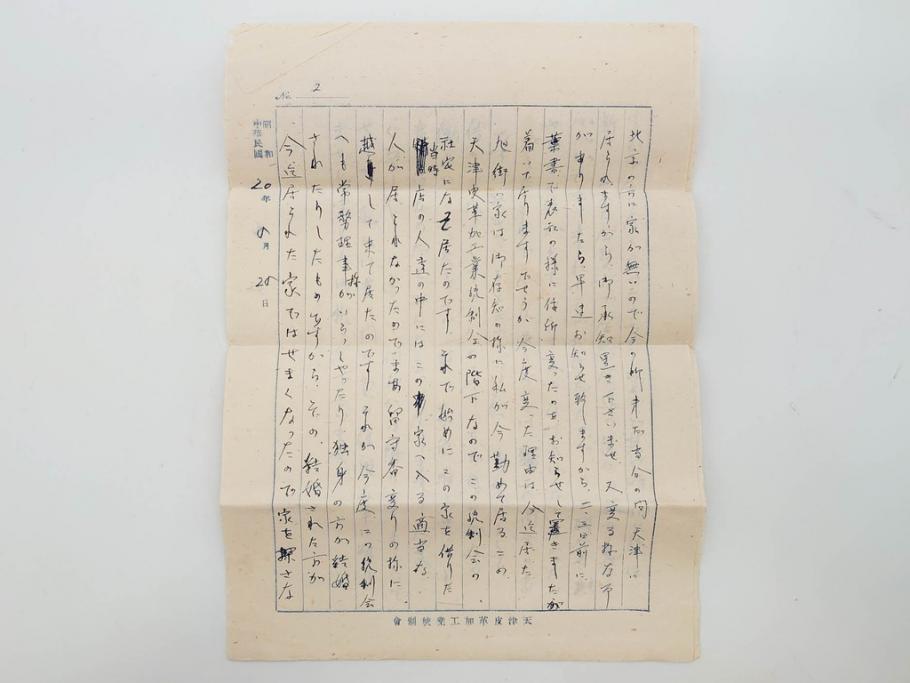 No. 2
北京の方に家が無いので今の所まだ当分の間天津に
居られますから、御承知置き下さいませ、又変る様な事
がありましたら、早速お知らせ致しますから、二、三日前に
葉書で表記の様に住所変ったのをお知らせして置きましたが
着いて居りますでせうか、今度変った理由は今迄居た
旭街の家は、御存知の様に私が今勤めて居るこの
天津皮革加工業統制会の階下なので、この統制会の
社宅になって居たのです、それで始めにこの家を借りた
当時店の人達の中にはこの家へ入る適当な
人が居られなかったので、留守番変りの様に
越して来て居たのです、それが今度、この統制会
へも常務理事様がいらっしゃったり、独身の方が結婚
されたりしたものですから、その、結婚された方が
今迄居られた家ではせまくなったので家を探さな
昭和
中華民國
20年
月
日
天津皮革加工業統制會